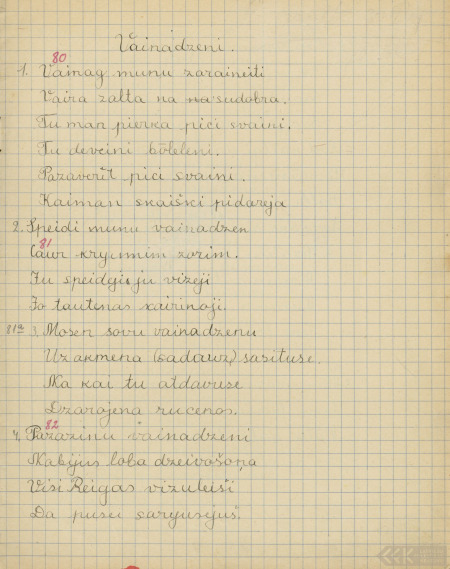 Vainadzeni.
80
1. Vainag munu zarainiti
Vaira zalta na na sudobra.
Tu man pierka pici svaini,
Tu deveini bōleleni.
Pazaverit pici svaini.
Kaiman skaiski pidareja
2. Speidi munu vainadzen
81
Caur kryumim zorim.
Ju speidgi ju vizeji
Jo tautinas kairinoji.
81a 3. Mosen sovu vainadzenu
Uz akmena (sadauz) sasituse.
Na kai tu atdavuse
Dzarojena rucenos.
82
4. Pazazinu vainadzeni
Nabijus loba dzeivošona
Visi Reigas vizuleiši
Da pusei saryusejuš.